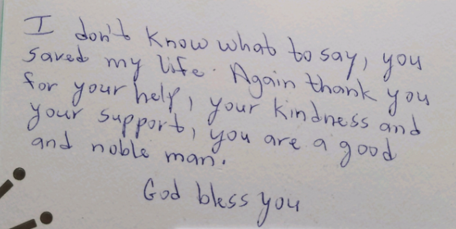 I don't know what to say, you
saved my life. Again thank you
for your help, your kindness and
your support, you are a good
and noble man.
God bless you